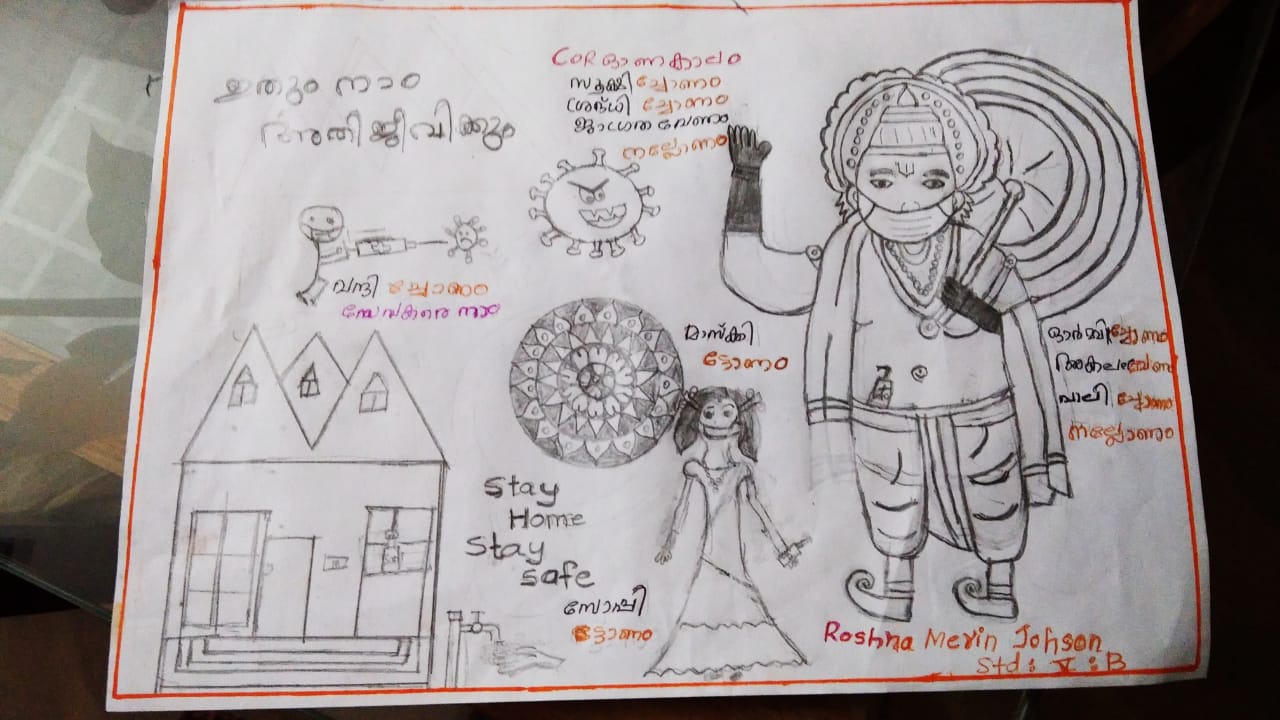 ഇതും നാം
അതിജീവിക്കും
COR ഓണക്കാലം
സൂക്ഷി ച്ചോണം
ശ്രദ്ധി ച്ചോണം
ജാഗ്രത വേണം
നല്ലോണം
വന്ദി ച്ചോണം
സേവകരെ നാം
മാസ്ക്കി
ട്ടോണം
ഓർമ്മി ച്ചോണം
അകലം വേണം
പാലി ച്ചോണം
നല്ലോണം
Stay
Home
Stay
safe
സോപ്പി
ട്ടോണം
Roshna Merin Johson
Std : V : B